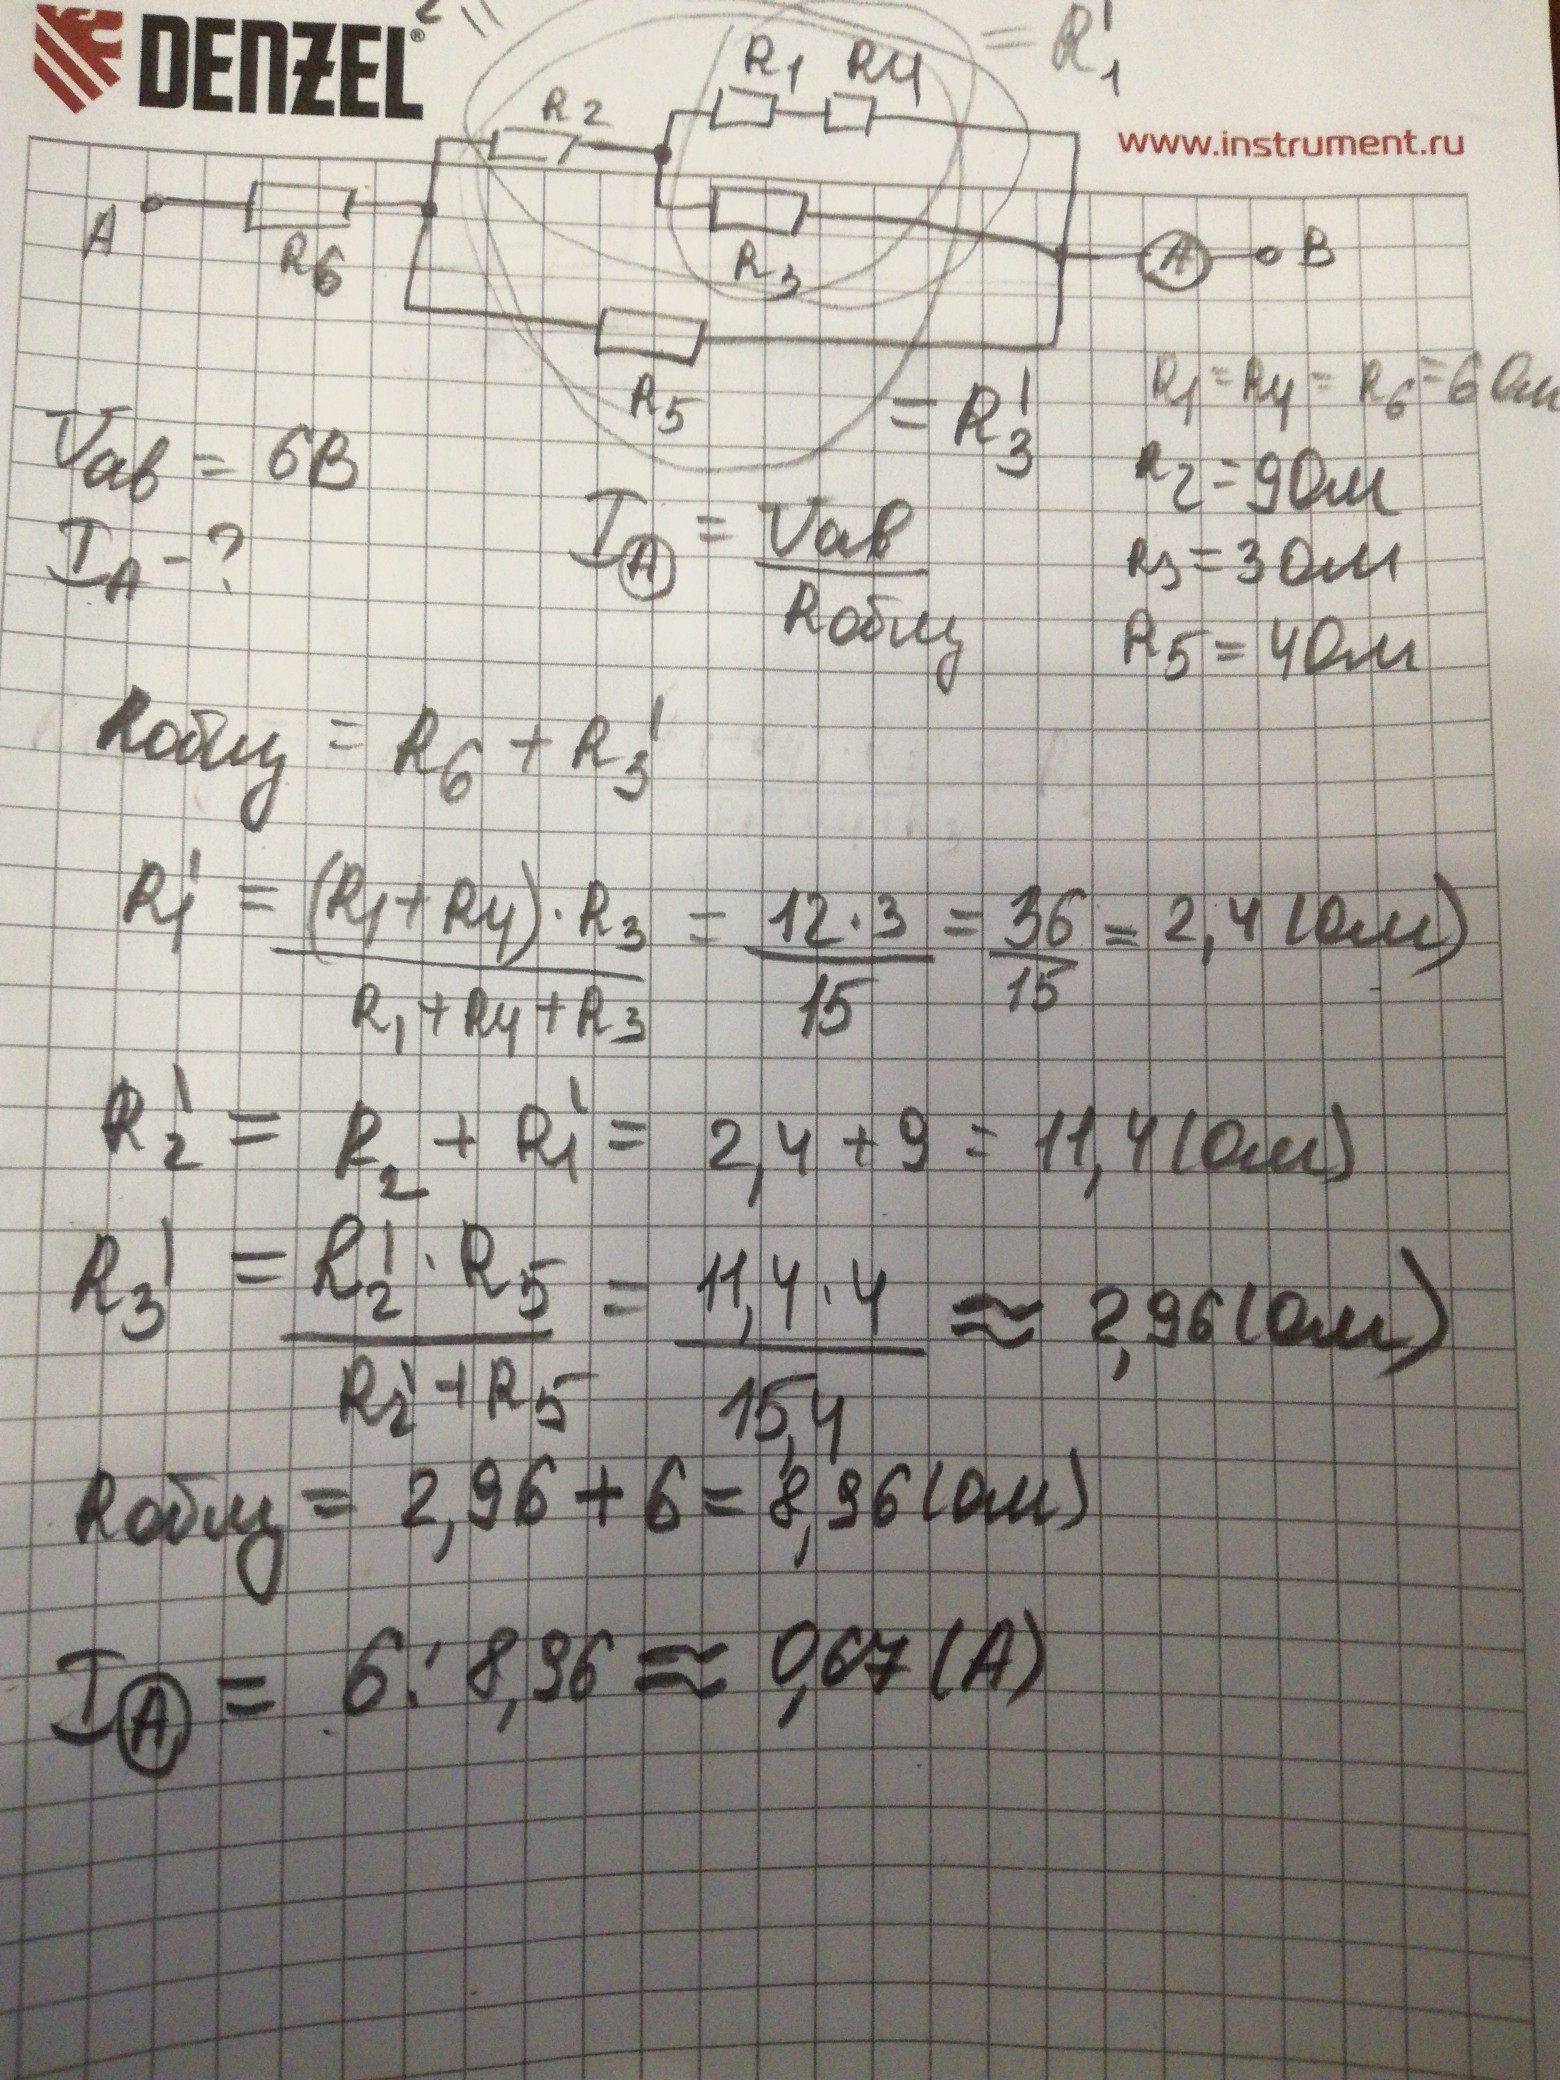 DENZEL®
= R₁'
R1 R4
R2
www.instrument.ru
A R6 R3 A B
R5
= R₃'
R₁ = R4 = R₆ = 6 Ом
Uав = 6В
R₂ = 9 Ом
I_A - ?
I_A = Uав / Rобщ
R₃ = 3 Ом
R₅ = 4 Ом
Rобщ = R₆ + R₃'
R₁' = (R₁ + R4) · R₃ / R₁ + R4 + R₃ = 12 · 3 / 15 = 36 / 15 = 2,4 (Ом)
R₂' = R₂ + R₁' = 2,4 + 9 = 11,4 (Ом)
R₃' = R₂' · R₅ / R₂' + R₅ = 11,4 · 4 / 15,4 ≈ 2,96 (Ом)
Rобщ = 2,96 + 6 = 8,96 (Ом)
I_A = 6 : 8,96 ≈ 0,67 (А)